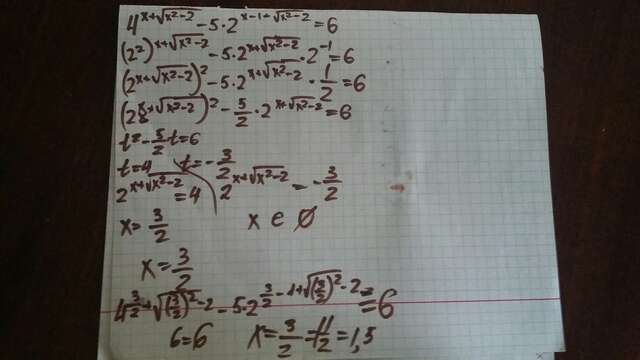 4^{x+√(x²-2)} - 5·2^{x-1+√(x²-2)} = 6
(2²)^{x+√(x²-2)} - 5·2^{x+√(x²-2)}·2^{-1} = 6
(2^{x+√(x²-2)})² - 5·2^{x+√(x²-2)}·1/2 = 6
(2^{x+√(x²-2)})² - 5/2·2^{x+√(x²-2)} = 6
t² - 5/2 t = 6
t = 4 t = -3/2
2^{x+√(x²-2)} = 4 2^{x+√(x²-2)} = -3/2
x = 3/2 x ∈ ∅
x = 3/2
4^{3/2+√((3/2)²-2)} - 5·2^{3/2-1+√((3/2)²-2)} = 6
6 = 6 x = 3/2 = 1,5